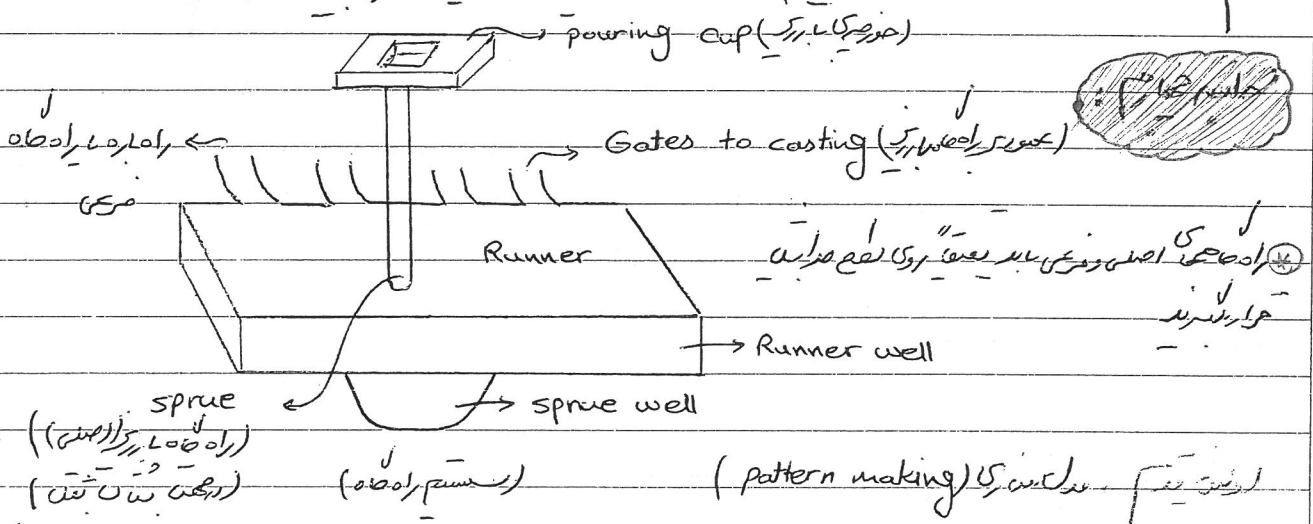 pouring cup (حوضچه بارریز)
جلسه چهارم :
راهباره یا راهگاه
فرعی
Gates to casting (عبور راهگاه بارریز)
Runner
راهگاه‌های اصلی و فرعی باید دقیقاً روی سطح جدایش
قرار گیرند
Runner well
sprue
sprue well
(راهگاه بارریز (اصلی))
(سیستم راهگاه)
(pattern making) مدل سازی